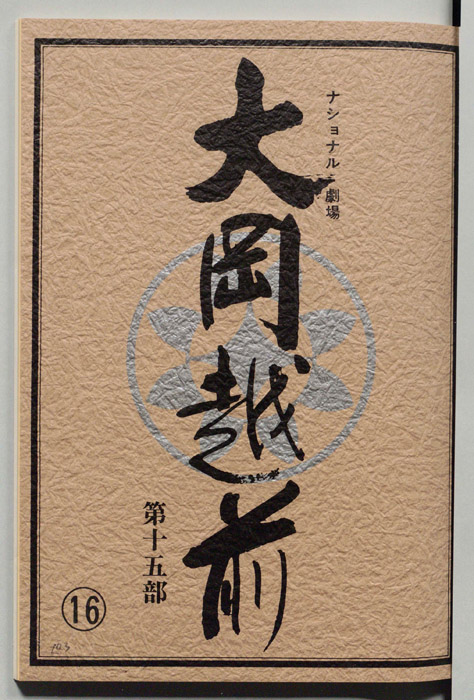 ナショナル劇場
大岡越前
第十五部
⑯